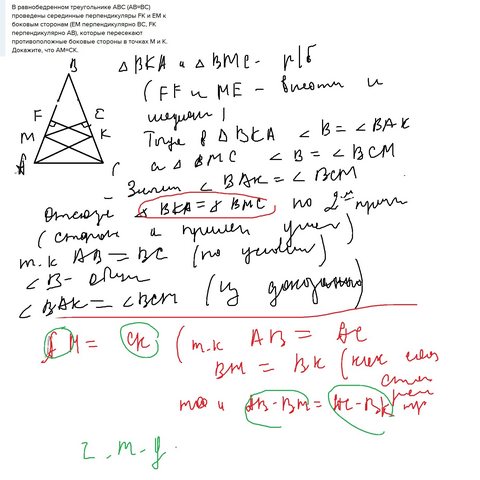 В равнобедренном треугольнике ABC (AB=BC)
проведены серединные перпендикуляры FK и EM к
боковым сторонам (EM перпендикулярно BC, FK
перпендикулярно AB), которые пересекают
противоположные боковые стороны в точках M и K.
Докажите, что AM=CK.
B
F E
M K
A C
△ BKA и △ BMC - р/б
( FF и ME - высоты и
медианы )
Тогда в △ BKA ∠ B = ∠ BAK
а △ BMC ∠ B = ∠ BCM
Значит ∠ BAK = ∠ BCM
Отсюда △ BKA = △ BMC по 2-м призн
( сторона и прилеж углам )
т.к AB = BC (по условию)
∠ B - общий
∠ BAK = ∠ BCM (из доказанного)
AM = CK (т.к AB = AC
BM = BK (как
то и AB - BM = AC - BK